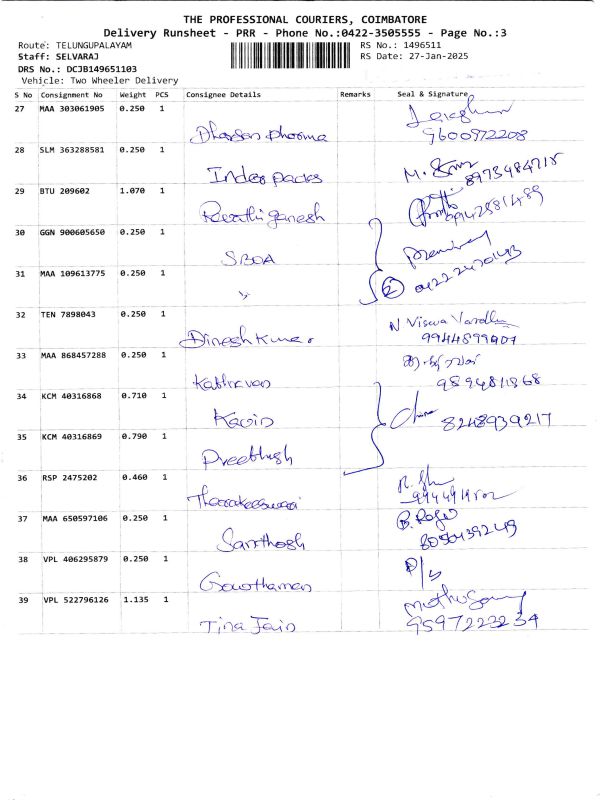 THE PROFESSIONAL COURIERS, COIMBATORE
Delivery Runsheet - PRR - Phone No.:0422-3505555 - Page No.:3
Route: TELUNGUPALAYAM
RS No.: 1496511
Staff: SELVARAJ
RS Date: 27-Jan-2025
DRS No.: DCJB149651103
Vehicle: Two Wheeler Delivery
S No Consignment No Weight PCS Consignee Details Remarks Seal & Signature
27 MAA 303061905 0.250 1
Dharsan Dhoorma
9600972208
28 SLM 363288581 0.250 1
Indeo packs
8973984715
29 BTU 209602 1.070 1
Revathi ganesh
9942881489
30 GGN 900605650 0.250 1
SBOA
31 MAA 109613775 0.250 1
2
32 TEN 7898043 0.250 1
Dinesh Kumar
N Viswa Vardhan
9944899907
33 MAA 868457288 0.250 1
Kathirvan
9894811868
34 KCM 40316868 0.710 1
Kavin
8248939217
35 KCM 40316869 0.790 1
Preethish
36 RSP 2475202 0.460 1
Tharakeeswari
37 MAA 650597106 0.250 1
Santhosh
B. Roja
38 VPL 406295879 0.250 1
Gowthaman
D/s
39 VPL 522796126 1.135 1
Tina Jain
Muthusamy
9597223234